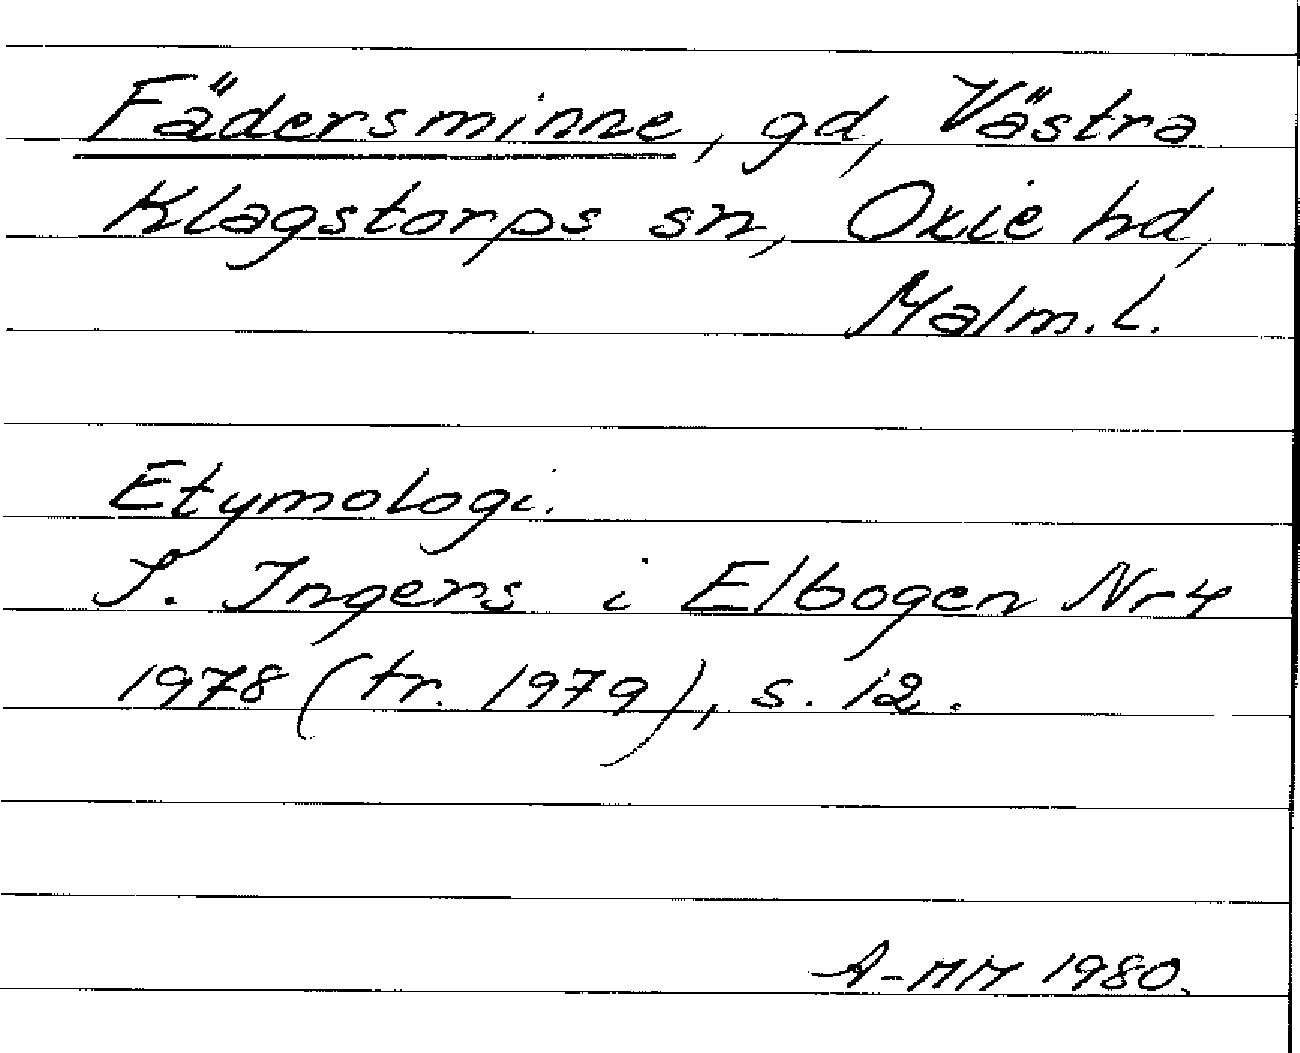 Fädersminne, gd, Västra
Klagstorps sn, Oxie hd,
Malm. L.
Etymologi.
S. Ingers i Elbogen Nr 4
1978 (tr. 1979), s. 12.
A-MM 1980.